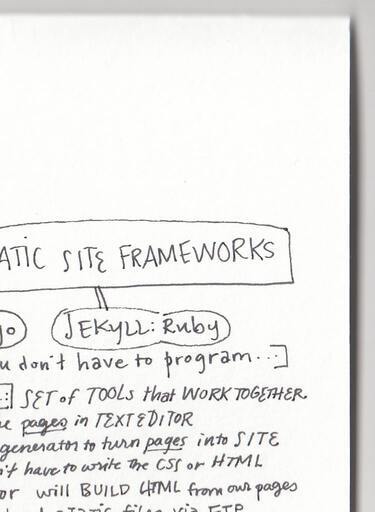 ATIC SITE FRAMEWORKS
go JEKYLL: Ruby
u don't have to program...]
:] SET of TOOLS that WORK TOGETHER.
e pages in TEXT EDITOR
generator to turn pages into SITE
n't have to write the CSS or HTML
or will BUILD HTML from our pages
static files via FTP